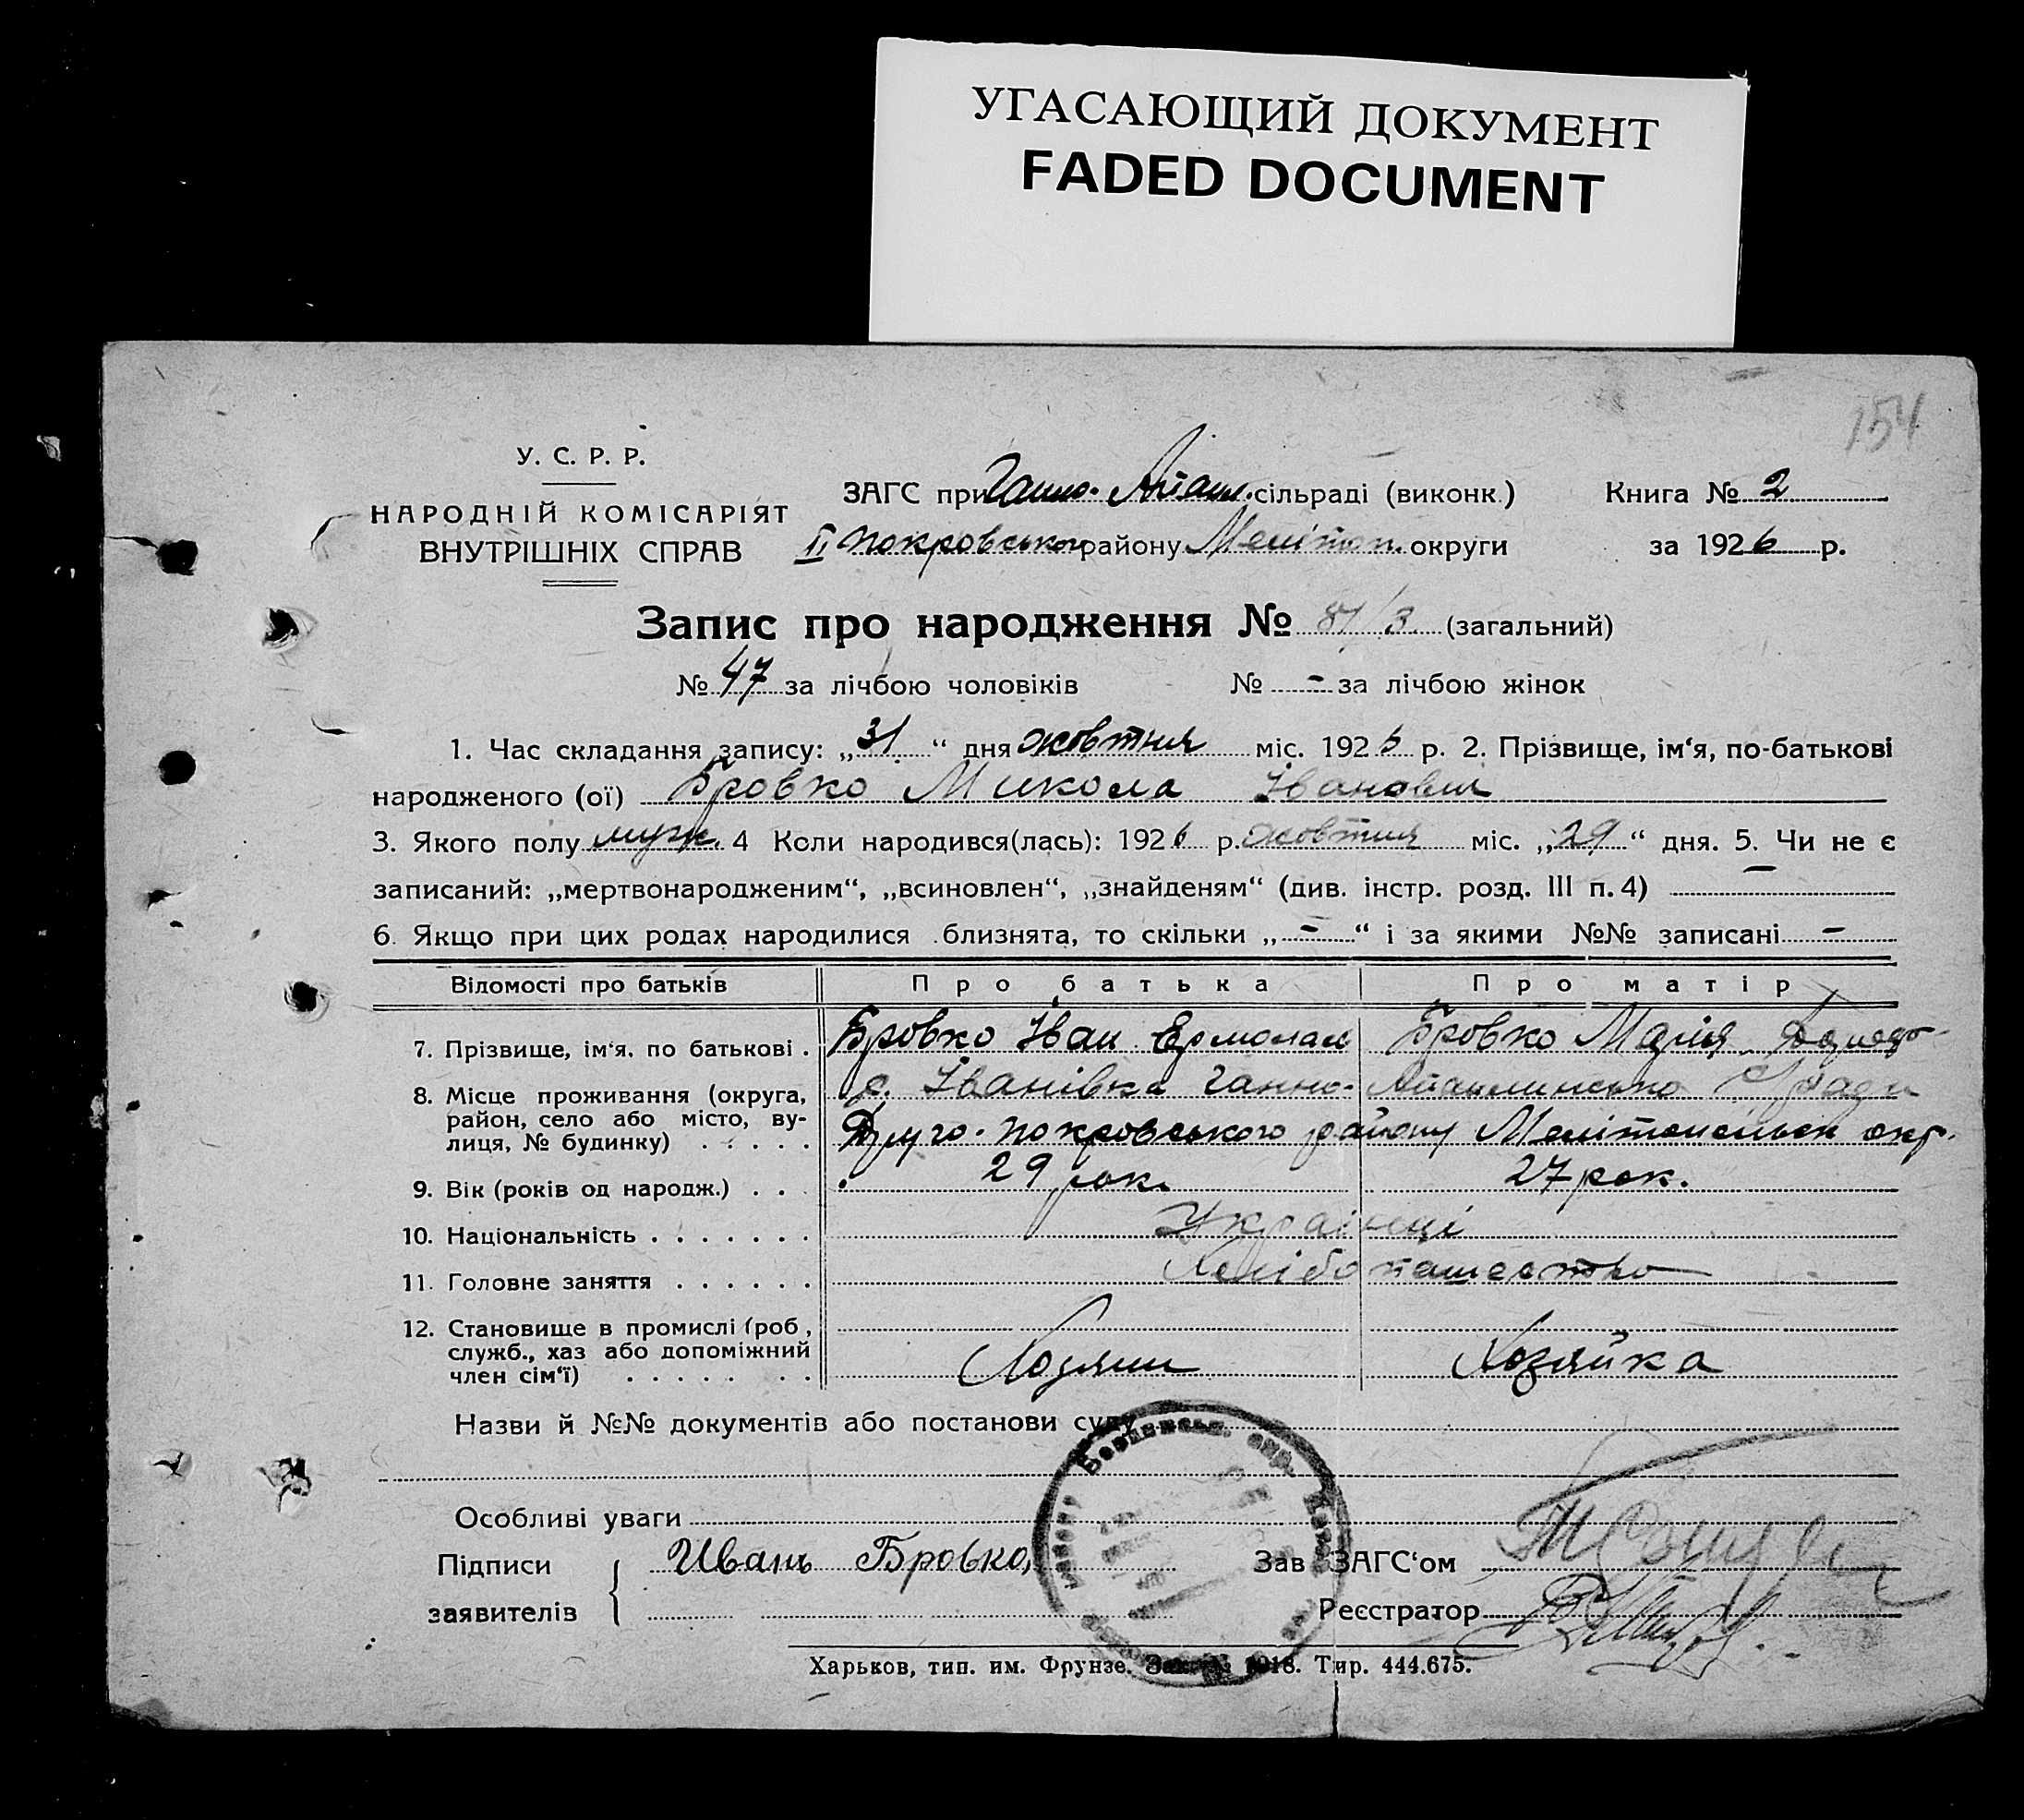 УГАСАЮЩИЙ ДОКУМЕНТ
FADED DOCUMENT
154
У. С. Р. Р.
НАРОДНІЙ КОМІСАРІЯТ
ВНУТРІШНІХ СПРАВ
ЗАГС при Ганно- сільраді (виконк.)
II Покровського району Мелітоп. округи
Книга № 2
за 1926 р.
Запис про народження № 81/3 (загальний)
№ 47 за лічбою чоловіків № - за лічбою жінок
1. Час складання запису: „31“ дня жовтня міс. 1926 р. 2. Прізвище, ім‘я, по-батькові
народженого (ої) Бровко Микола Іванович
3. Якого полу муж. 4 Коли народився(лась): 1926 р. жовтня міс. „29“ дня. 5. Чи не є
записаний: „мертвонародженим“, „всиновлен“, „знайденям“ (див. інстр. розд. III п. 4) —
6. Якщо при цих родах народилися близнята, то скільки „-“ і за якими №№ записані -
Відомості про батьків Про батька Про матір
7. Прізвище, ім‘я, по батькові . Бровко Іван Ермолаев Бровко Марія
8. Місце проживання (округа, район, село або місто, вулиця, № будинку) . . . . . с. Іванівка Ганно- С/ради
Друго-Покровського району окр.
9. Вік (років од народж.) . . . 29 рок. 27 рок.
10. Національність . . . . . . . Українці
11. Головне заняття . . . . . . Хлібопашество
12. Становище в промислі (роб, служб., хаз або допоміжний член сім‘ї) . . . . . . . Хозяин Хозяйка
Назви й №№ документів або постанови суду
Особливі уваги
Підписи
заявителів
Иванъ Бровко
Зав ЗАГС‘ом
Реєстратор
Харьков, тип. им. Фрунзе. Зак. № 1018. Тир. 444.675.